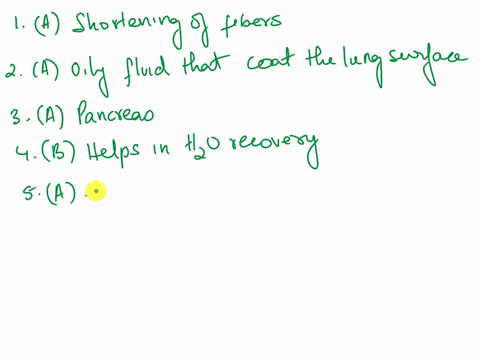 1. (A) Shortening of fibers
2. (A) Oily fluid that coat the lung surface
3. (A) Pancreas
4. (B) Helps in H₂O recovery
5. (A)